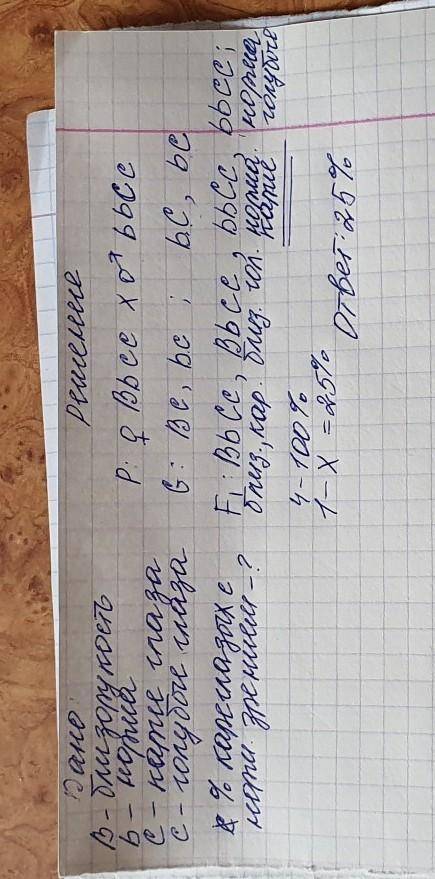 Дано:
B - близорукость
b - норма
C - карие глаза
c - голубые глаза
% кареглазых с
норм. зрением - ?
Решение
P: ♀ Bbcc x ♂ bbCc
G: Bc, bc ; bC, bc
F₁: BbCc, Bbcc, bbCc, bbcc;
близ., кар. близ. гол. норма. карие норма голубые
4 - 100%
1 - x = 25%
Ответ: 25%